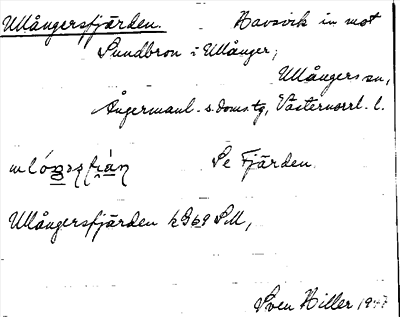 Ullångersfjärden. Havsvik in mot
Sundbron i Ullånger;
Ullångers sn,
Ångermanl. s. doms tg, Västernorrl. l.
Se Fjärden.
Ullångersfjärden SM,
Sven Hiller